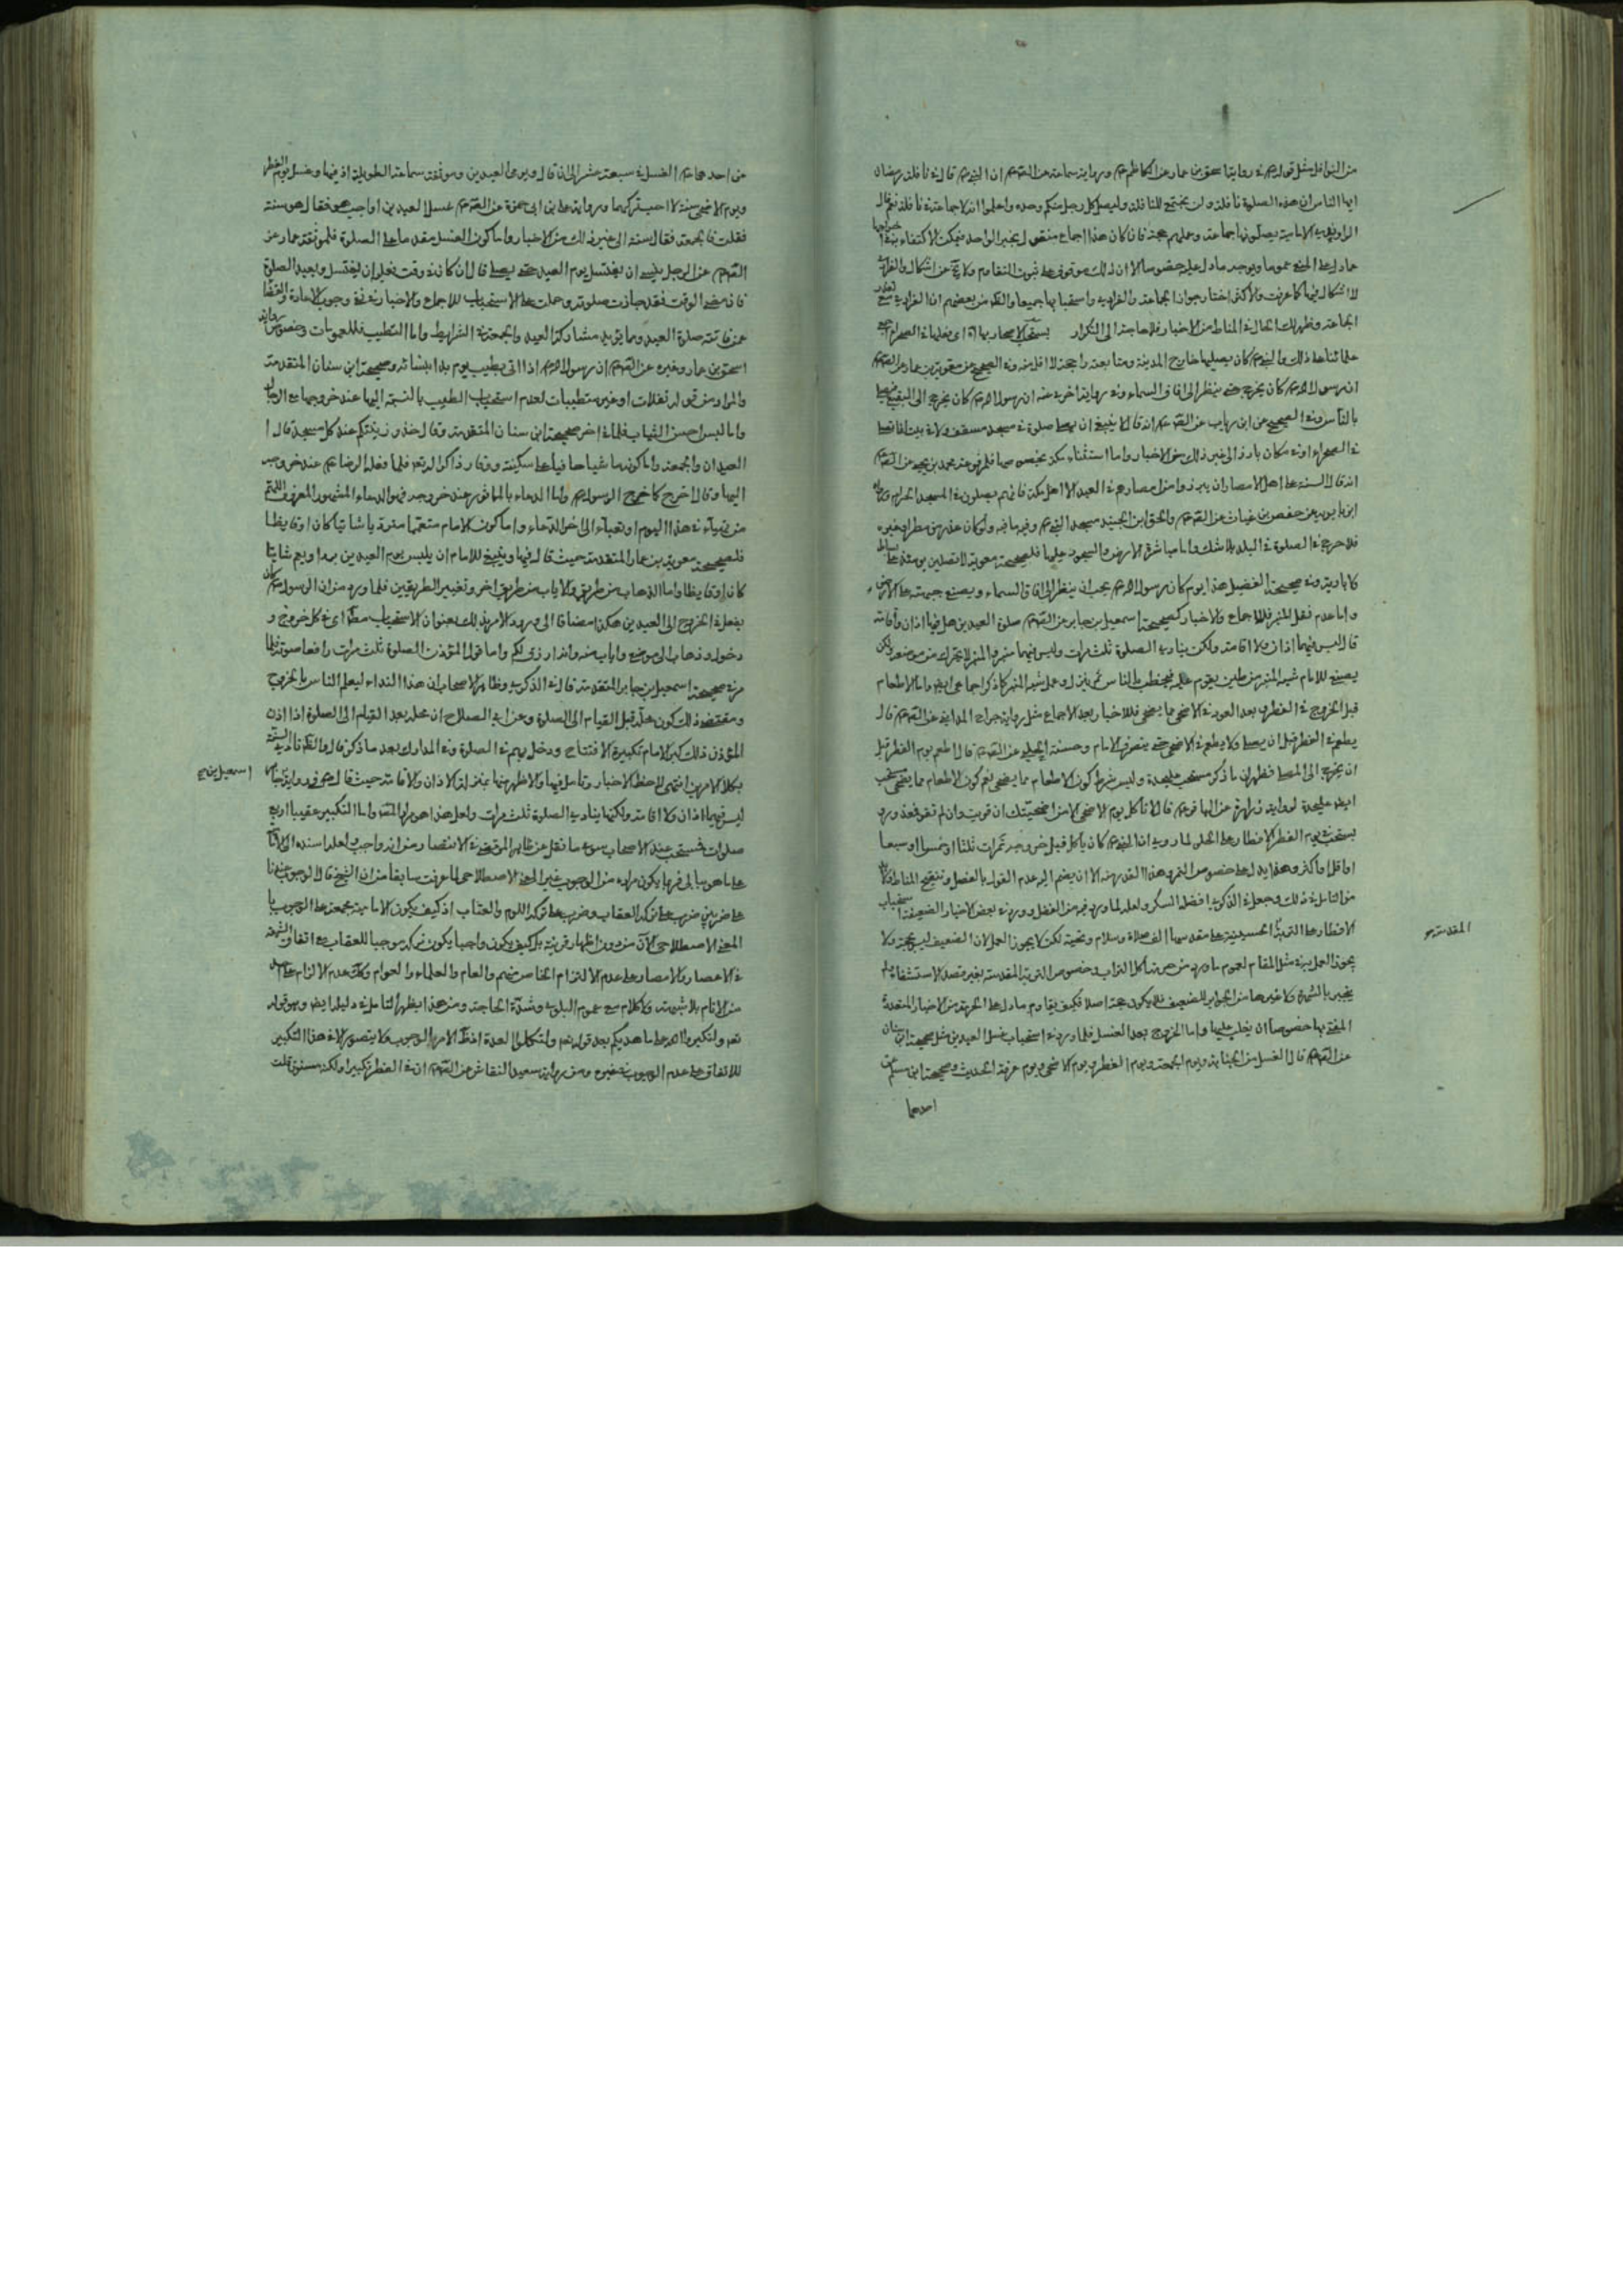 من النوافل مثل قوله م في رواية اسحق بن عمار عن الكاظم م ورواية سماعة عن الصم ان النبي م قال في نافلة رمضان
ايها الناس ان هذه الصلوة نافلة ولن يجتمع للنافلة وليصل كل رجل منكم وحده واعلموا ان لا جماعة في نافلة
الامامية يصلونها جماعة وعملهم حجة فان كان هذا اجماع منقول بخبر الواحد فيمكن الاكتفاء
مادل على المنع عموما ويوجد مادل عليه خصوصا الا ان ذلك موقوف على ثبوت التقاوم ولا يخ عن اشكال
لا اشكال فيها كما عرفت والاكثر اختار جواز الجماعة والفرادى واستحبابها جميعا
الجماعة وظهر لك الحال في المناط من الاخبار فلا حاجة الى التكرار يستحب الاصحار بها اي فعلها في الصحراء
علمائنا على ذلك والنبي م كان يصليها خارج المدينة ومتابعته راجحة لا اقل منه وفي الصحيح عن معوية بن عمار عن الصم
ان رسول الله م كان يخرج حتى ينظر الى افاق السماء وفي رواية اخرى عنه ان رسول الله م كان يخرج الى البقيع فيصلي
بالناس وفي الصحيح عن ابن رياب عن الصم انه قال لا ينبغي ان يصلى صلوة في مسجد مسقف ولا في بيت انما تصلى
في الصحراء او في مكان بارز الى غير ذلك من الاخبار واما استثناء مكة بخصوصها فلمرفوعة محمد بن يحيى عن الصم
انه قال السنة على اهل الامصار ان يبرزوا من امصارهم في العيد الا اهل مكة فانهم يصلون في المسجد الحرام
ابن بابويه عن حفص بن غياث عن الصم والحق ابن الجنيد مسجد النبي م وفيه ما فيه ولو كان عذر من مطر او غيره
فلا حرج في الصلوة في البلد بلا شك واما مباشرة الارض والسجود عليها فلصحيحة معوية
وفي صحيحة الفضيل هذا يوم كان رسول الله م يحب ان ينظر الى افاق السماء ويضع جبهته على الارض
واما عدم نقل المنبر فللاجماع والاخبار كصحيحة اسمعيل بن جابر عن الصم صلوة العيدين هل فيها اذان واقامة
قال ليس فيهما اذان ولا اقامة ولكن ينادى الصلوة ثلث مرات وليس فيهما منبر المنبر لا يحرك من موضعه ولكن
يصنع للامام شبه المنبر من طين يقوم عليه فيخطب بالناس ثم ينزل وعمل شبه المنبر كما ذكر اجماعي ايض واما الاطعام
قبل الخروج في الفطر وبعد العود في الاضحى مما يضحى فللاخبار بعد الاجماع مثل رواية جراح المدايني عن الصم قال
يطعم في الفطر قبل ان يصلي ولا يطعم في الاضحى حتى ينصرف الامام وحسنة الحلبي عن الصم قال اطعم يوم الفطر قبل
ان يخرج الى المصلى فظهر ان ما ذكر مستحب على حدة وليس شرط كون الاطعام مما يضحى نعم كون الاطعام مما يضحى مستحب
ايض على حدة لرواية زرارة عن الباقر م قال لا تأكل يوم الاضحى الا من اضحيتك ان قويت وان لم تقو فمعذور
يستحب يوم الفطر الافطار على الحلو لما روي ان النبي م كان يأكل قبل خروجه تمرات ثلثا او خمسا او سبعا
او اقل او اكثر وهذا يدل على خصوص التمر وهذا القدر منه الا ان يضم اليه عدم القول بالفصل وتنقيح المناط
من التامل في ذلك وجعل في الذكرى افضله السكر ولعله لما ورد فيه من الفضل وورد في بعض الاخبار الضعيفة استحباب
الافطار على التربة الحسينية على مقدسها الف صلاة وسلام وتحية لكن لا يجوز العمل لان الضعيف ليس بحجة ولا
يجوز العمل به في مثل المقام لعموم ما ورد من حرمة اكل التراب وخصوص التربة المقدسة بغير قصد الاستشفاء
ينجبر بالشهرة ولا غيرها من الجوابر للضعيف فلا يكون حجة اصلا فكيف يقاوم مادل على الحرمة من الاخبار المتعددة
المفتى بها خصوصا ان يغلب عليها واما الخروج بعد الغسل فلما ورد في استحباب غسل العيدين مثل صحيحة ابن سنان
عن الصم قال الغسل من الجنابة ويوم الجمعة ويوم الفطر ويوم الاضحى ويوم عرفة الحديث وصحيحة ابن مسلم عن
احدهما
المقدسة
عن احدهما م الغسل في سبعة عشر الى ان قال ويومي العيدين وموثقة سماعة الطويلة اذ فيها وغسل يوم الفطر
ويوم الاضحى سنة لا احب تركها ورواية علي بن ابي حمزة عن الصم غسل العيدين اواجب هو فقال هو سنة
فقلت فالجمعة فقال سنة الى غير ذلك من الاخبار واما كون الغسل مقدما على الصلوة فلموثقة عمار عن
الصم عن الرجل ينسى ان يغتسل يوم العيد حتى يصلي قال ان كان في وقت فعليه ان يغتسل ويعيد الصلوة
فان مضى الوقت فقد جازت صلوته وحملت على الاستحباب للاجماع والاخبار في نفي وجوب الاعادة والقضاء
عمن فاتته صلوة العيد ومما يؤيد مشاركة العيد والجمعة في الشرايط واما التطيب فللعمومات وخصوص رواية
اسحق بن عمار وغيره عن الصم ان رسول الله م اذا اتي بطيب يوم بدا بنسائه وصحيحة ابن سنان المتقدمة
والمراد من قوله تفلات او غير متطيبات لعدم استحباب الطيب بالنسبة اليها عند خروجها مع الرجال
واما لبس احسن الثياب فلما في اخر صحيحة ابن سنان المتقدمة وقال خذوا زينتكم عند كل مسجد قال
العيدان والجمعة واما كونه ماشيا حافيا على سكينة ووقار ذاكرا لله تعم فلما فعله الرضا م عند خروجه
اليها وقال اخرج كما خرج الرسول م واما الدعاء بالماثور عند خروجه فهو الدعاء المشهور المعروف اللهم
من تهيأ في هذا اليوم او تعبأ الى اخر الدعاء واما كون الامام متعمما مترديا شاتيا كان او قايظا
فلصحيحة معوية بن عمار المتقدمة حيث قال فيها وينبغي للامام ان يلبس يوم العيدين بردا ويعتم شاتيا
كان او قايظا واما الذهاب من طريق والاياب من طريق اخر وتغيير الطريقين فلما ورد من ان الرسول كان
يفعل في الخروج الى العيدين هكذا مضافا الى ورود الامر بذلك بعنوان الاستحباب مطلقا اي في كل خروج و
دخول وذهاب الى موضع واياب منه وانه ارزق لكم واما قول المؤذن الصلوة ثلث مرات رافعا صوته فلما
مر في صحيحة اسمعيل بن جابر المتقدمة قال في الذكرى وظاهر الاصحاب ان هذا النداء ليعلم الناس بالخروج
ومقتضى ذلك كون محله قبل القيام الى الصلوة وعن ابي الصلاح ان محله بعد القيام الى الصلوة اذا اذن
المؤذن ذلك كبر الامام تكبيرة الافتتاح ودخل بهم في الصلوة وفي المدارك بعد ما ذكر قال والظاهر تأدي السنة
بكلا الامرين انتهى لاحظ الاخبار وتأمل فيها والاظهر منها بمنزلة الاذان والاقامة حيث قال م في رواية
ليس فيهما اذان ولا اقامة ولكنها ينادى الصلوة ثلث مرات ولعل هذا هو مراد واما التكبير عقيب اربع
صلوات فمستحب عند الاصحاب سوى ما نقل عن ظاهر المرتضى في الانتصار من انه واجب ولعله اسنده الى
على ما هو ببالي فربما يكون مراده من الوجوب غير المعنى الاصطلاحي لما عرفت سابقا من ان الشيخ قال الوجوب عندنا
على ضربين ضرب على تركه العقاب وضرب على تركه اللوم والعتاب اذ كيف يكون الامامية مجمعة على الوجوب با
المعنى الاصطلاحي الان من دون اظهار قرينة بل كيف يكون واجبا يكون تركه موجبا للعقاب مع اتفاق الشيعة
في الاعصار والامصار على عدم الالتزام الخاص منهم والعام والعلماء والعوام وكذا عدم الالزام على احد
من الانام بلا شبهة ولا كلام مع عموم البلوى وشدة الحاجة ومن هذا يظهر التامل في دليله ايض وهو قوله
تعم ولتكبروا الله على ما هديكم بعد قوله تعم ولتكملوا العدة اذ ظاهر الامر الوجوب ولا يتصور الا في هذا التكبير
للاتفاق على عدم الوجوب في غيره ومن رواية سعيد النقاش عن الصم ان في الفطر تكبيرا ولكنه مسنون قلت
اسمعيل بن